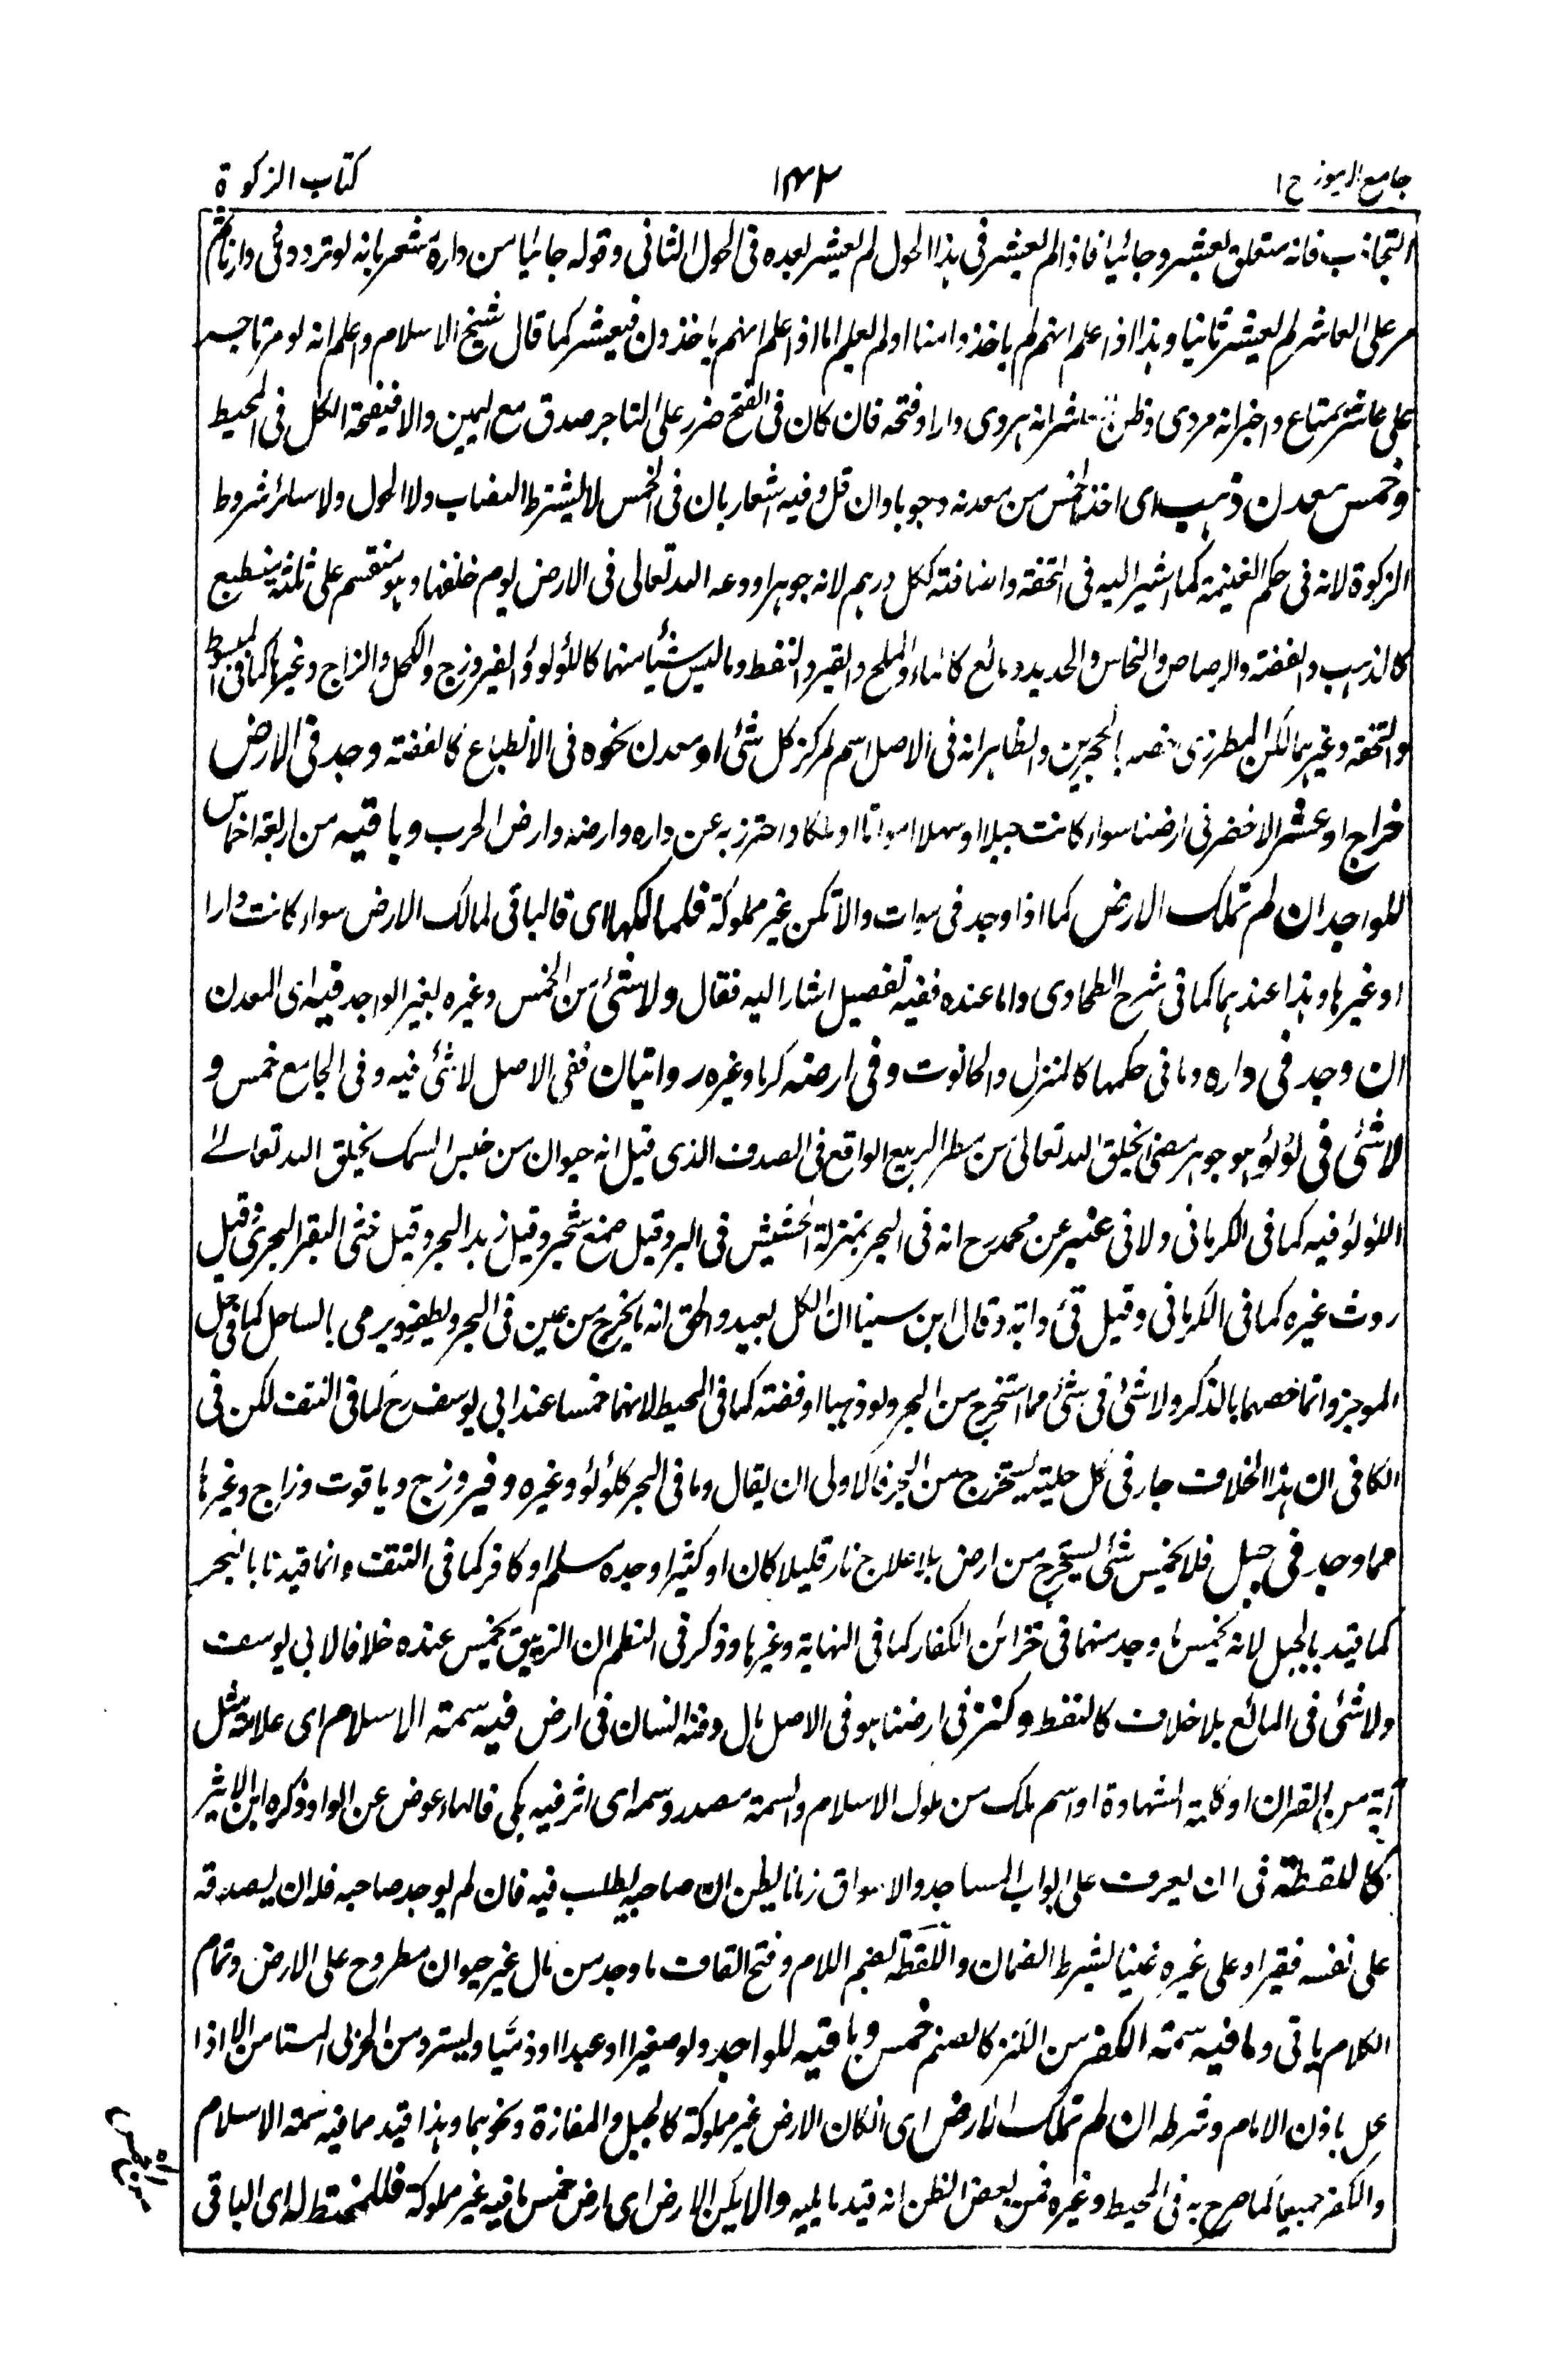 جامع الرموز ج ١
١٤٣
كتاب الزكوة
التجاذب فانه متعلق بعشر وجائيا فاذا لم يعشر فى هذا الحول لم يعشر بعده فى الحول الثانى وقوله جائيا من دارة مشعر بانه لو تردد ذمى دارنا ثم
مر على العاشر لم يعشر ثانيا وهذا اذا علم انهم لم ياخذوا منا او لم يعلم اما اذا علم انهم ياخذون فيعشر كما قال شيخ الاسلام واعلم انه لو مر تاجر
على عاشر بمتاع واخبر انه مروى وظن العاشر انه هروى واراد فتحه فان كان فى الفتح ضرر على التاجر صدق مع اليمين والا فيفتحه الكل فى المحيط
وخمس معدن ذهب اى اخذ الخمس من معدنه وجوبا وان قل وفيه اشعار بان فى الخمس لا يشترط النصاب ولا الحول ولا سائر شروط
الزكوة لانه فى حكم الغنيمة كما اشير اليه فى التحفة واضافته ككل درهم لانه جوهر اودعه الله تعالى فى الارض يوم خلقها وهو منقسم على ثلثة منطبع
كالذهب والفضة والرصاص والنحاس والحديد ومائع كالماء والملح والقير والنفط وما ليس شيئا منهما كاللؤلؤ والفيروزج والكحل والزاج وغيرها كما فى المبسوط
والتحفة وغيرهما لكن المطرزى خصه بالحجرين والظاهر انه فى الاصل اسم لمركز كل شئ او معدن نحوه فى الانطباع كالفضة وجد فى الارض
خراج او عشر الاخضر فى ارضنا سواء كانت جبلا او سهلا امواتا او ملكا واحترز به عن داره وارضه وارض الحرب وباقيه من اربعة اخماس
للواجد ان لم تملك الارض كما اذا وجد فى موات والا تكن غير مملوكة فلمالكها اى فالباقى لمالك الارض سواء كانت دارا
او غيرها وهذا عندهما كما فى شرح الطحاوى واما عنده ففيه تفصيل اشار اليه فقال ولا شئ من الخمس وغيره لغير الواجد فيه اى المعدن
ان وجد فى داره وما فى حكمها كالمنزل والحانوت وفى ارضه كرما وغيره روايتان ففى الاصل لا شئ فيه وفى الجامع خمس و
لا شئ فى لؤلؤ هو جوهر مضئ يخلق الله تعالى من مطر الربيع الواقع فى الصدف الذى قيل انه حيوان من جنس السمك يخلق الله تعالى
اللؤلؤ فيه كما فى الكرمانى ولا فى عنبر عن محمد رح انه فى البحر بمنزلة الحشيش فى البر وقيل صمغ شجر وقيل زبد البحر وقيل خثى البقر البحرى وقيل
روث غيره كما فى الكرمانى وقيل قئ دابة وقال ابن سينا ان الكل بعيد والحق انه ما يخرج من عين فى البحر ويطفو ويرمى بالساحل كما فى حل
الموجز وانما خصهما بالذكر ولا شئ فى شئ مما استخرج من البحر ولو ذهبا او فضة كما فى المحيط لانهما خمسا عند ابى يوسف رح كما فى النتف لكن فى
الكافى ان هذا الخلاف جار فى كل حلية يستخرج من البحر فالاولى ان يقال وما فى البحر كلؤلؤ وغيره وفيروزج وياقوت وزاج وغيرها
مما وجد فى جبل فلا يخمس شئ يستخرج من ارض بلا علاج نار قليلا كان او كثيرا وجده مسلم او كافر كما فى النتف وانما قيدنا بالبحر
كما قيد بالجبل لانه يخمس ما وجد منهما فى خزائن الكفار كما فى النهاية وغيرها وذكر فى النظم ان الزيبق يخمس عنده خلافا لابى يوسف
ولا شئ فى المائع بلا خلاف كالنفط وكنز فى ارضنا هو فى الاصل مال دفنه انسان فى ارض فيه سمة الاسلام اى علامة مثل
آية من القران او كلمة الشهادة او اسم ملك من ملوك الاسلام والسمة مصدر وسمه اى اثر فيه بكى فالهاء عوض عن الواو ذكره ابن الاثير
كاللقطة فى ان يعرف على ابواب المساجد والاسواق زمانا يظن ان صاحبه يطلب فيه فان لم يوجد صاحبه فله ان يصدقه
على نفسه فقيرا وعلى غيره غنيا بشرط الضمان واللقطة بضم اللام وفتح القاف ما وجد من مال غير حيوان مطروح على الارض وتمام
الكلام ياتى وما فيه سمة الكفر من الكنز كالصنم خمس وباقيه للواجد ولو صغيرا او عبدا او ذميا ويسترد من الحربى المستامن الا اذا
عمل باذن الامام وشرطه ان لم تملك الارض اى ان كان الارض غير مملوكة كالجبل والمفازة ونحوهما وهذا قيد مما فيه سمة الاسلام
والكفر جميعا كما صرح به فى المحيط وغيره فمن بعض الظن انه قيد ما يليه والا يكن الارض اى ارض خمس ما فيه غير مملوكة فللمختط له اى الباقى